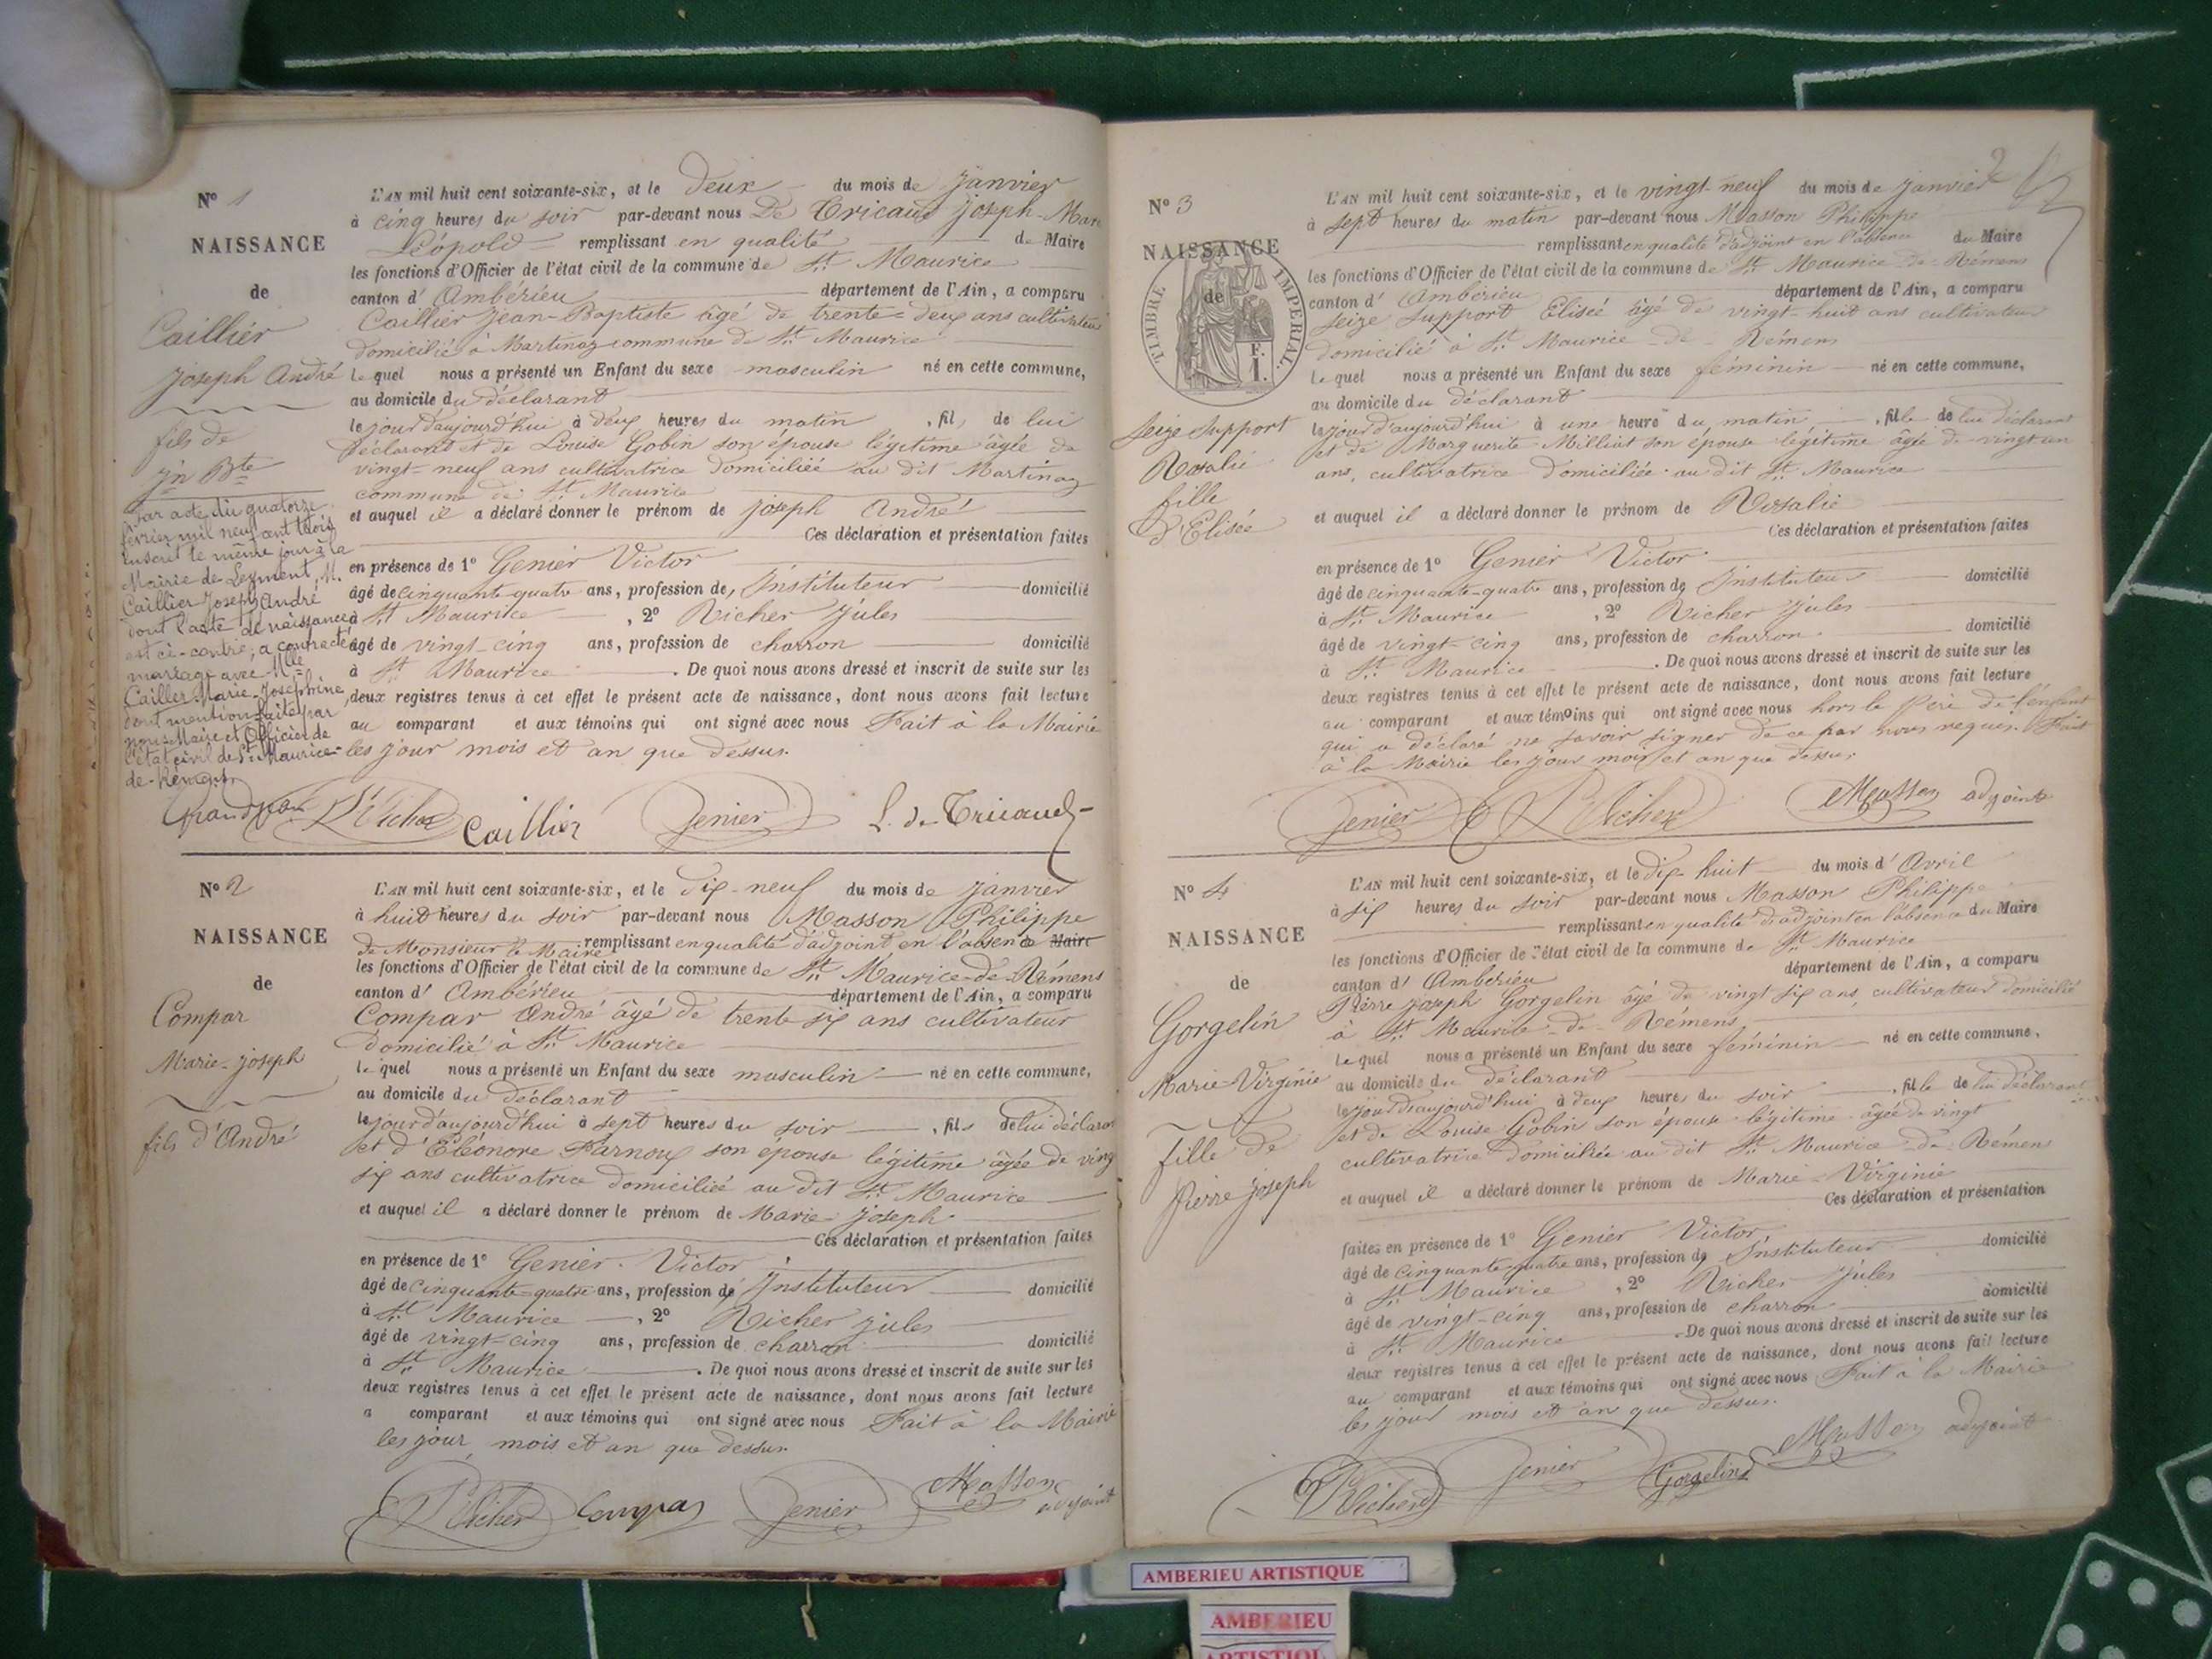 N° 1
NAISSANCE
de
Caillier
Joseph André
fils de
Jn Bte
Par acte du quatorze
février mil neuf cent trois
inscrit le même jour à la
Mairie de Leyment, M.
Caillier Joseph André
dont l'acte de naissance
est ci-contre, a contracté
mariage avec Mlle
Cailler Marie Josephine
dont mention faite par
nous Maire et Officier de
l'état civil de St Maurice-
de-Rémens
L'AN mil huit cent soixante-six, et le deux du mois de Janvier
à cinq heures du soir par-devant nous De Tricaud Joseph-Marie
Léopold remplissant en qualité de Maire
les fonctions d'Officier de l'état civil de la commune de St Maurice
canton d' Ambérieu département de l'Ain, a comparu
Caillier Jean-Baptiste âgé de trente=deux ans cultivateur
domicilié à Martinaz commune de St Maurice
lequel nous a présenté un Enfant du sexe masculin né en cette commune,
au domicile du déclarant
le jour d'aujourd'hui à deux heures du matin, fils de lui
déclarant et de Louise Gobin son épouse légitime âgée de
vingt=neuf ans cultivatrice domiciliée au dit Martinaz
commune de St Maurice
et auquel il a déclaré donner le prénom de Joseph André
Ces déclaration et présentation faites
en présence de 1° Genier Victor
âgé de cinquante-quatre ans, profession de, Instituteur domicilié
à St Maurice, 2° Richer Jules
âgé de vingt-cinq ans, profession de charron domicilié
à St Maurice. De quoi nous avons dressé et inscrit de suite sur les
deux registres tenus à cet effet le présent acte de naissance, dont nous avons fait lecture
au comparant et aux témoins qui ont signé avec nous Fait à la Mairie
les jour mois et an que dessus.
J Richer Caillier Genier L. de Tricaud
N° 2
NAISSANCE
de
Compar
Marie-Joseph
fils d'André
L'AN mil huit cent soixante-six, et le dix-neuf du mois de Janvier
à huit heures du soir par-devant nous Masson Philippe
de Monsieur le Maire remplissant en qualité d'adjoint en l'absence Maire
les fonctions d'Officier de l'état civil de la commune de St Maurice-de-Rémens
canton d' Ambérieu département de l'Ain, a comparu
Compar André âgé de trente six ans cultivateur
domicilié à St Maurice
lequel nous a présenté un Enfant du sexe masculin né en cette commune,
au domicile du déclarant
le jour d'aujourd'hui à sept heures du soir, fils de lui déclarant
et d'Eléonore Farnoux son épouse légitime âgée de vingt
six ans cultivatrice domiciliée au dit St Maurice
et auquel il a déclaré donner le prénom de Marie-Joseph
Ces déclaration et présentation faites
en présence de 1° Genier Victor
âgé de cinquante=quatre ans, profession de Instituteur domicilié
à St Maurice, 2° Richer Jules
âgé de vingt-cinq ans, profession de charron domicilié
à St Maurice. De quoi nous avons dressé et inscrit de suite sur les
deux registres tenus à cet effet le présent acte de naissance, dont nous avons fait lecture
a comparant et aux témoins qui ont signé avec nous Fait à la Mairie
les jour, mois et an que dessus.
J Richer Compar Genier Masson adjoint
N° 3
NAISSANCE
de
TIMBRE IMPÉRIAL.
F.
1.
Seize Support
Rosalie
fille
d'Elisée
2
L'AN mil huit cent soixante-six, et le vingt-neuf du mois de Janvier
à sept heures du matin par-devant nous Masson Philippe
remplissant en qualité d'adjoint en l'absence du Maire
les fonctions d'Officier de l'état civil de la commune de St Maurice-de-Rémens
canton d' Ambérieu département de l'Ain, a comparu
Seize Support Elisée âgé de vingt-huit ans cultivateur
domicilié à St Maurice-de-Rémens
lequel nous a présenté un Enfant du sexe féminin né en cette commune,
au domicile du déclarant
le jour d'aujourd'hui à une heure du matin, fille de lui déclarant
et de Marguerite Milliat son épouse légitime âgé de vingt un
ans, cultivatrice domiciliée au dit St Maurice
et auquel il a déclaré donner le prénom de Rosalie
Ces déclaration et présentation faites
en présence de 1° Genier Victor
âgé de cinquante-quatre ans, profession de Instituteur domicilié
à St Maurice, 2° Richer Jules
âgé de vingt-cinq ans, profession de charron domicilié
à St Maurice. De quoi nous avons dressé et inscrit de suite sur les
deux registres tenus à cet effet le présent acte de naissance, dont nous avons fait lecture
au comparant et aux témoins qui ont signé avec nous hors le Père de l'enfant
qui a déclaré ne savoir signer de ce par nous requis. Fait
à la Mairie les jour mois et an que dessus.
Genier J Richer Masson adjoint
N° 4
NAISSANCE
de
Gorgelin
Marie-Virginie
fille de
Pierre Joseph
L'AN mil huit cent soixante-six, et le dix-huit du mois d' Avril
à six heures du soir par-devant nous Masson Philippe
remplissant en qualité d'adjoint en l'absence du Maire
les fonctions d'Officier de l'état civil de la commune de St Maurice
canton d' Ambérieu département de l'Ain, a comparu
Pierre Joseph Gorgelin âgé de vingt six ans, cultivateur domicilié
à St Maurice-de-Rémens
lequel nous a présenté un Enfant du sexe féminin né en cette commune,
au domicile du déclarant
le jour d'aujourd'hui à deux heures du soir, fille de lui déclarant
et de Louise Gobin son épouse légitime âgée de vingt
cultivatrice domiciliée au dit St Maurice-de-Rémens
et auquel il a déclaré donner le prénom de Marie=Virginie
Ces déclaration et présentation
faites en présence de 1° Genier Victor
âgé de cinquante-quatre ans, profession de Instituteur domicilié
à St Maurice, 2° Richer Jules
âgé de vingt-cinq ans, profession de charron domicilié
à St Maurice. De quoi nous avons dressé et inscrit de suite sur les
deux registres tenus à cet effet le présent acte de naissance, dont nous avons fait lecture
au comparant et aux témoins qui ont signé avec nous Fait à la Mairie
les jour mois et an que dessus.
J Richer Genier Gorgelin Masson adjoint
AMBERIEU ARTISTIQUE
AMBERIEU
ARTISTIQUE